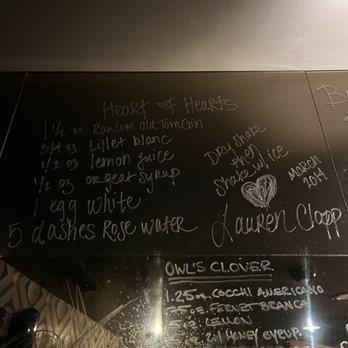 Heart of Hearts
1 1/2 oz Ransom Old Tom Gin
3/4 oz Lillet blanc
1/2 oz lemon juice
1/2 oz orgeat syrup
1 egg white
5 dashes Rose water
Dry shake
then
shake w/ ice
March
2014
Lauren Clapp
OWL'S CLOVER
1.25oz COCCHI AMERICANO
.75oz FERNET BRANCA
LEMON
2:1 HONEY SYRUP